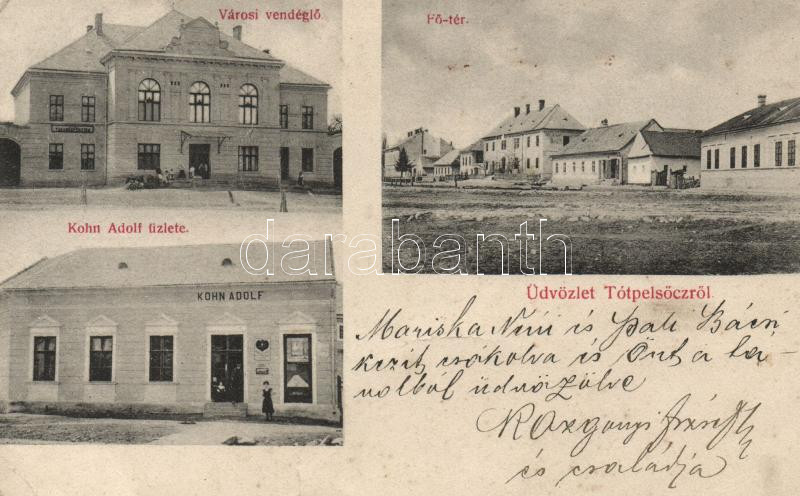 Városi vendéglő.
Fő-tér.
Kohn Adolf üzlete.
KOHN ADOLF
darabanth
Üdvözlet Tótpelsőczről.
Mariska Néni és Pali Bácsi
kezit csókolva és Önt a tá-
volból üdvözölve
Rozgonyi József
és családja